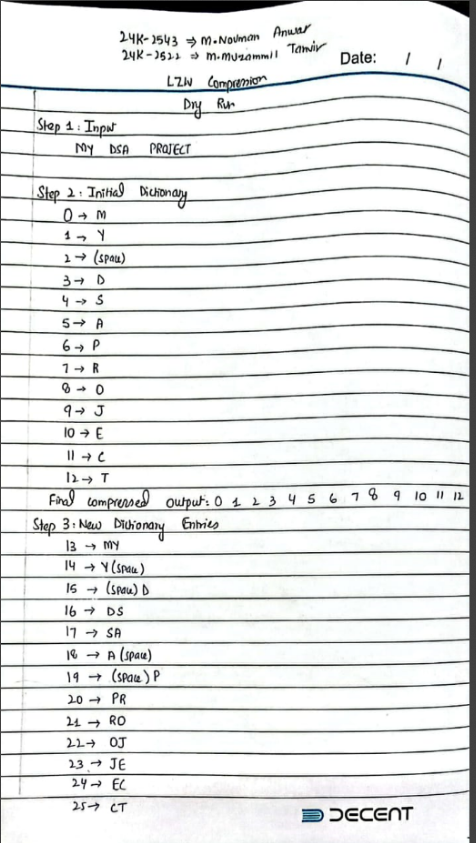 24K-2543 ⇒ M.Nouman Anwar
24K-2522 ⇒ M.Muzammil Tanvir
Date: / /
LZW Compression
Dry Run
Step 1: Input
MY DSA PROJECT
Step 2: Initial Dictionary
0 → M
1 → Y
2 → (space)
3 → D
4 → S
5 → A
6 → P
7 → R
8 → O
9 → J
10 → E
11 → C
12 → T
Final compressed output: 0 1 2 3 4 5 6 7 8 9 10 11 12
Step 3: New Dictionary Entries
13 → MY
14 → Y (space)
15 → (space) D
16 → DS
17 → SA
18 → A (space)
19 → (space) P
20 → PR
21 → RO
22 → OJ
23 → JE
24 → EC
25 → CT
DECENT